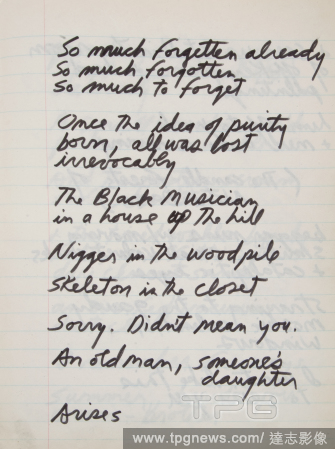 So much forgotten already
So much forgotten
So much to forget
Once the idea of purity
born, all was lost
irrevocably
The Black Musician
in a house up the hill
Nigger in the woodpile
Skeleton in the closet
Sorry. Didnt mean you.
An old man, someone's
daughter
Arises
TPG
www.tpgnews.com/達志影像